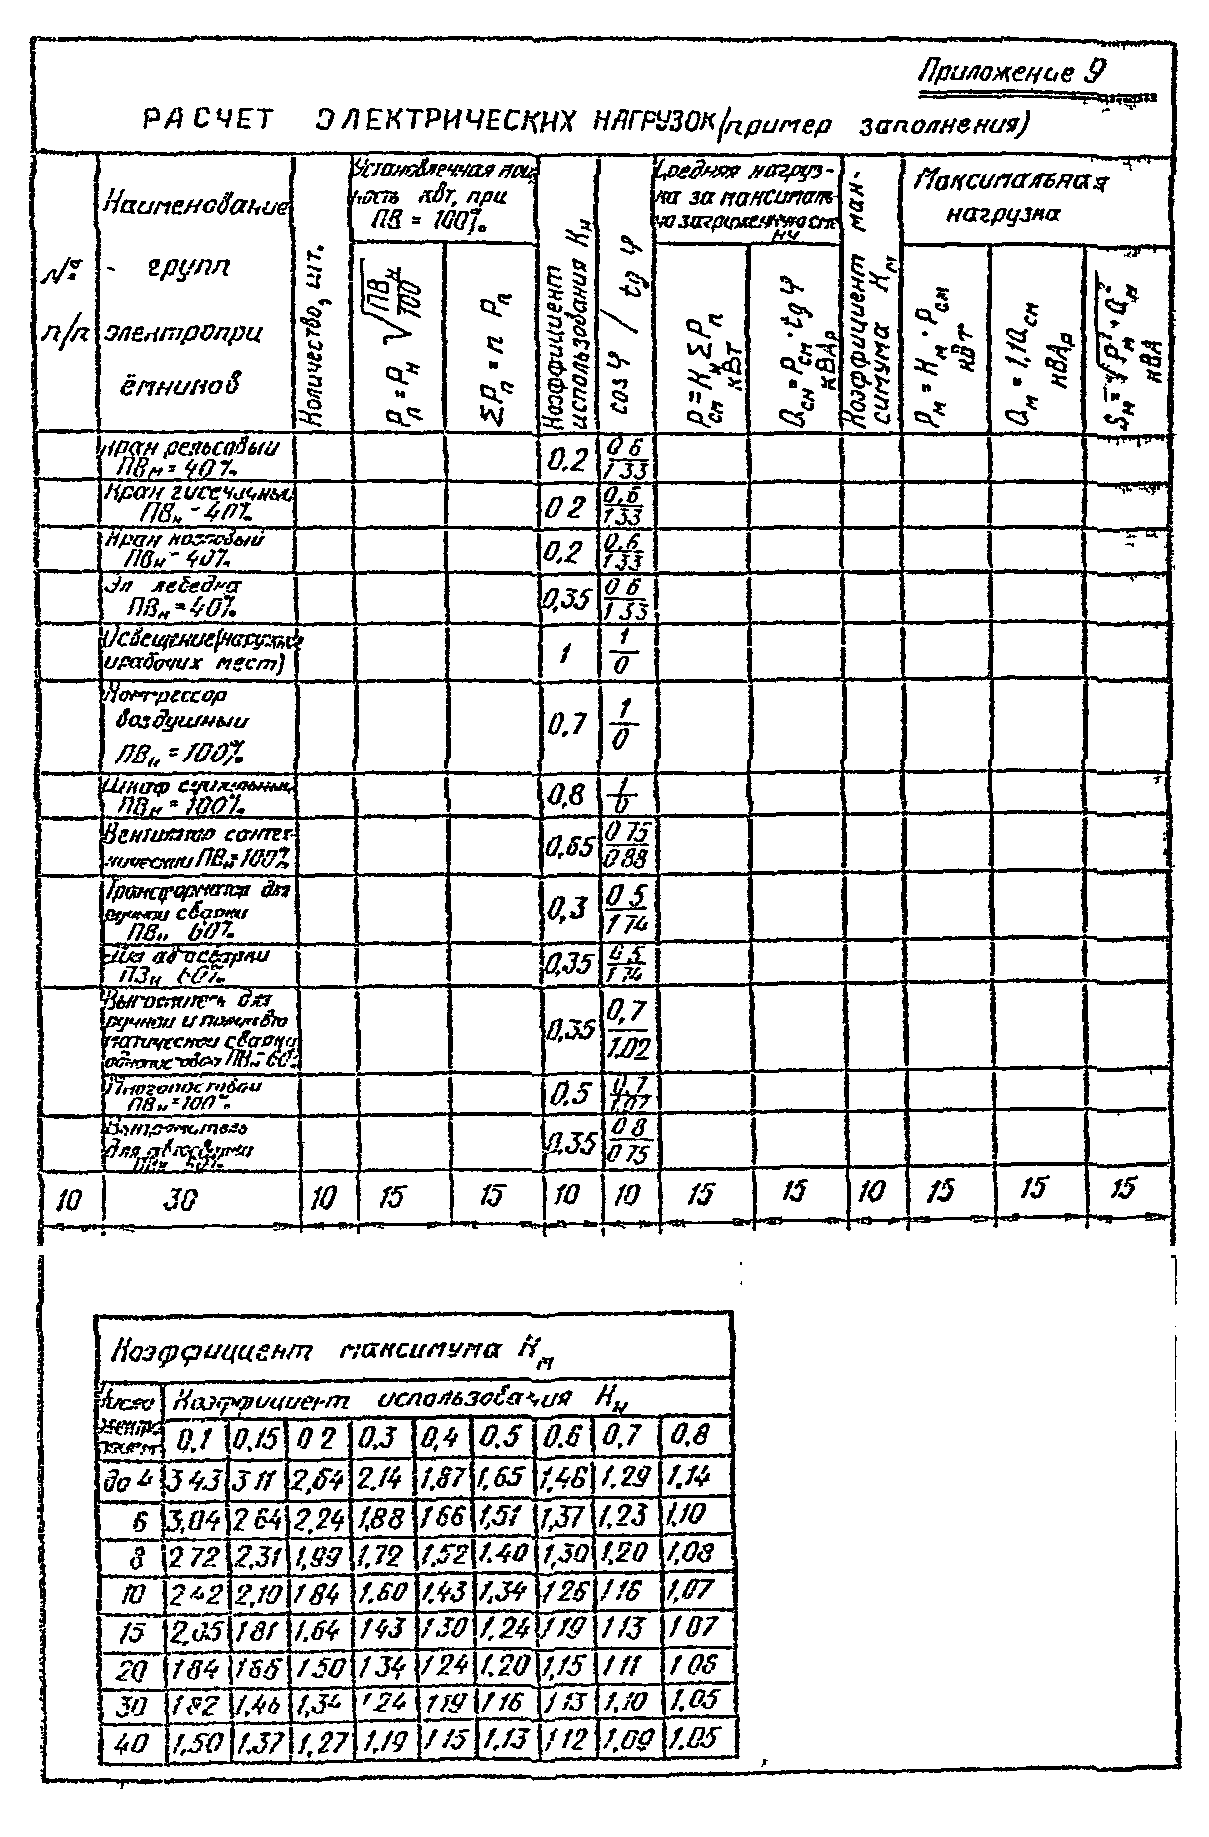 Приложение 9
РАСЧЕТ ЭЛЕКТРИЧЕСКИХ НАГРУЗОК (пример заполнения)
№ п/п
Наименование
- групп
электропри
ёмников
Количество, шт.
Установленная мощ
ность кВт, при
ПВ = 100%
Pп = Pн √ПВн/100
ΣPп = n Pп
Коэффициент
использования Kи
cos φ / tg φ
Средняя нагруз-
ка за максималь
но загруженную см
ну
Pсм = Kи ΣPп
кВт
Qсм = Pсм · tg φ
кВАр
Коэффициент мак-
симума Kм
Максимальная
нагрузка
Pм = Kм · Pсм
кВт
Qм = 1,1Qсм
кВАр
Sм = √Pм² + Qм²
кВА
Кран рельсовый
ПВн = 40% 0.2 0 6/1 33
Кран гусеничный
ПВн - 40% 0 2 0,6/1 33
Кран козловый
ПВн - 40% 0,2 0,6/1 33
Эл лебедка
ПВн = 40% 0,35 0 6/1 33
Освещение (наружное
и рабочих мест) 1 1/0
Компрессор
воздушный
ПВн = 100% 0,7 1/0
Шкаф сушильный
ПВн = 100% 0,8 1/0
Вентилятор сантех-
нический ПВн = 100% 0,65 0 75/0 88
Трансформатор для
ручной сварки
ПВн 60% 0,3 0 5/1 74
Для автосварки
ПВн 60% 0,35 0,5/1,74
Выпрямитель для
ручной и полуавто
матической сварки
однопостовой ПВн = 60% 0,35 0,7/1.02
Многопостовой
ПВн = 100% 0,5 0,7/1,02
Выпрямитель
для автосварки
0,35 0 8/0 75
10 30 10 15 15 10 10 15 15 10 15 15 15
Коэффициент максимума Kм
Число Коэффициент использования Kи
0,1 0,15 0 2 0,3 0,4 0,5 0.6 0,7 0,8
до 4 3 43 3 11 2,64 2.14 1,87 1,65 1,46 1.29 1.14
6 3,04 2 64 2,24 1,88 1 66 1,51 1,37 1,23 1,10
8 2 72 2,31 1,99 1,72 1,52 1.40 1,30 1,20 1,08
10 2 42 2,10 1 84 1,60 1,43 1,34 1 26 1 16 1,07
15 2,05 1 81 1,64 1 43 1 30 1,24 1 19 1 13 1 07
20 1 84 1 66 1 50 1 34 1 24 1.20 1,15 1 11 1 06
30 1 62 1,46 1,34 1 24 1 19 1 16 1 13 1,10 1,05
40 1,50 1.37 1,27 1,19 1 15 1,13 1 12 1,09 1.05